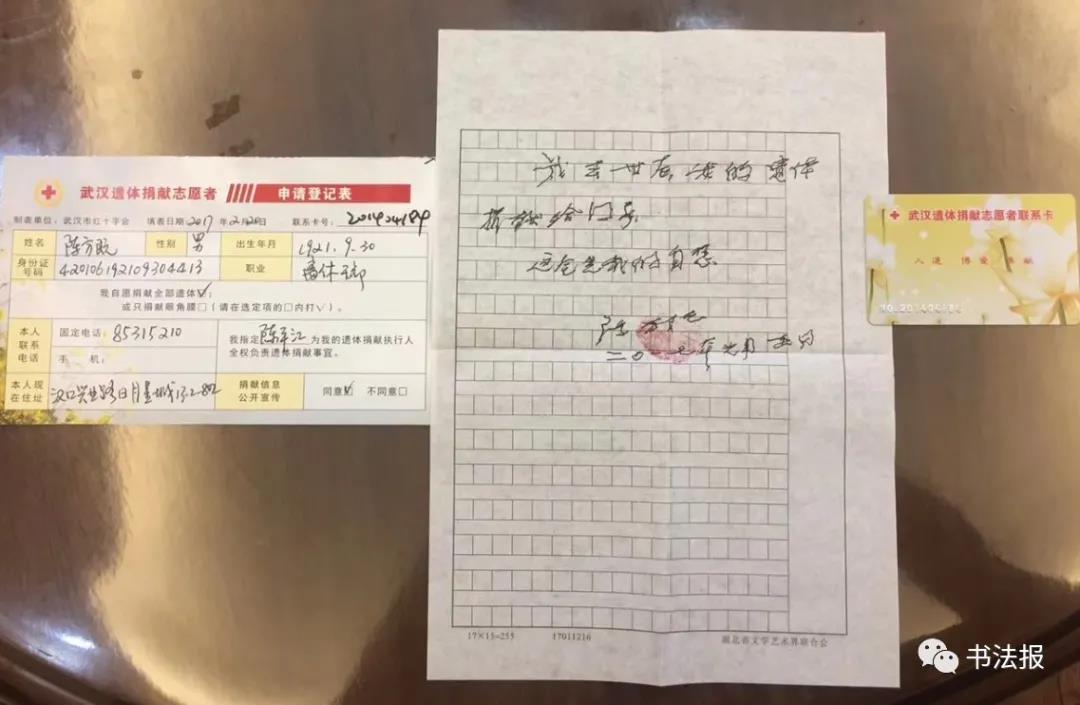 武汉遗体捐献志愿者 申请登记表
制表单位：武汉市红十字会 填表日期：2017年2月20日 联系卡号：
姓名 陈方既 性别 男 出生年月 1921.9.30
身份证号码 420106192109304413 职业 离休干部
我自愿捐献全部遗体☑；
或只捐献眼角膜□（请在选定项的□内打√）。
本人联系电话 固定电话：85315210
手 机：
我指定陈平江为我的遗体捐献执行人
全权负责遗体捐献事宜。
本人现在住址 汉口兴业路日月星城
捐献信息公开宣传 同意☑ 不同意□
我去世后，我的遗体
捐献给国家
这完全是我的自愿
陈方既
二〇一七年元月
17×15=255 17011216 湖北省文学艺术界联合会
武汉遗体捐献志愿者联系卡
人道 博爱 奉献
书法报